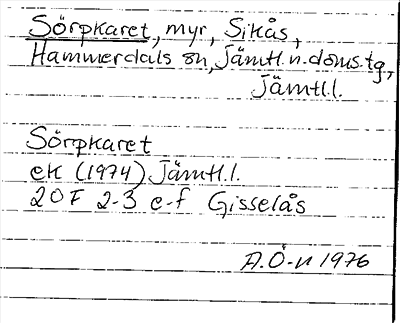 Sörpkaret, myr, Sikås,
Hammerdals sn, Jämtl.n.doms.tg,
Jämtl.l.
Sörpkaret
ek (1974) Jämtl.l.
20F 2-3 e-f Gisselås
A.Ö-n 1976